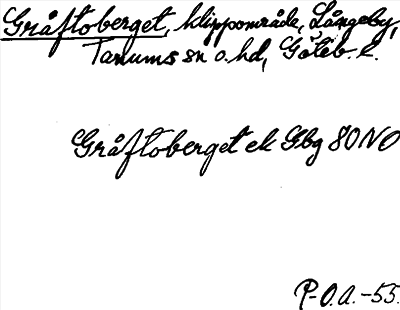 Gråftoberget, klippområde, Långeby,
Tanums sn o. hd, Göteb. l.
Gråftoberget ek Gbg 80 NO
P-O.A.-55.